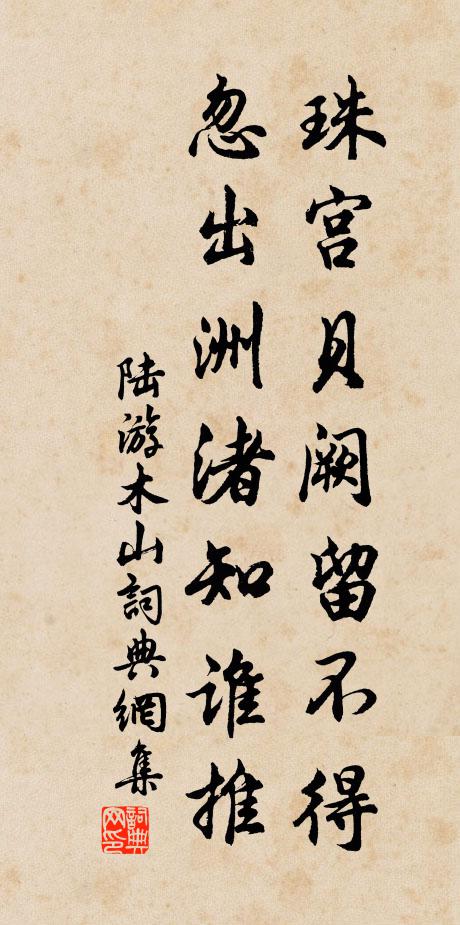 珠宫贝阙留不得
忽出洲渚知谁推
陆游木山詞典網集
詞典网印